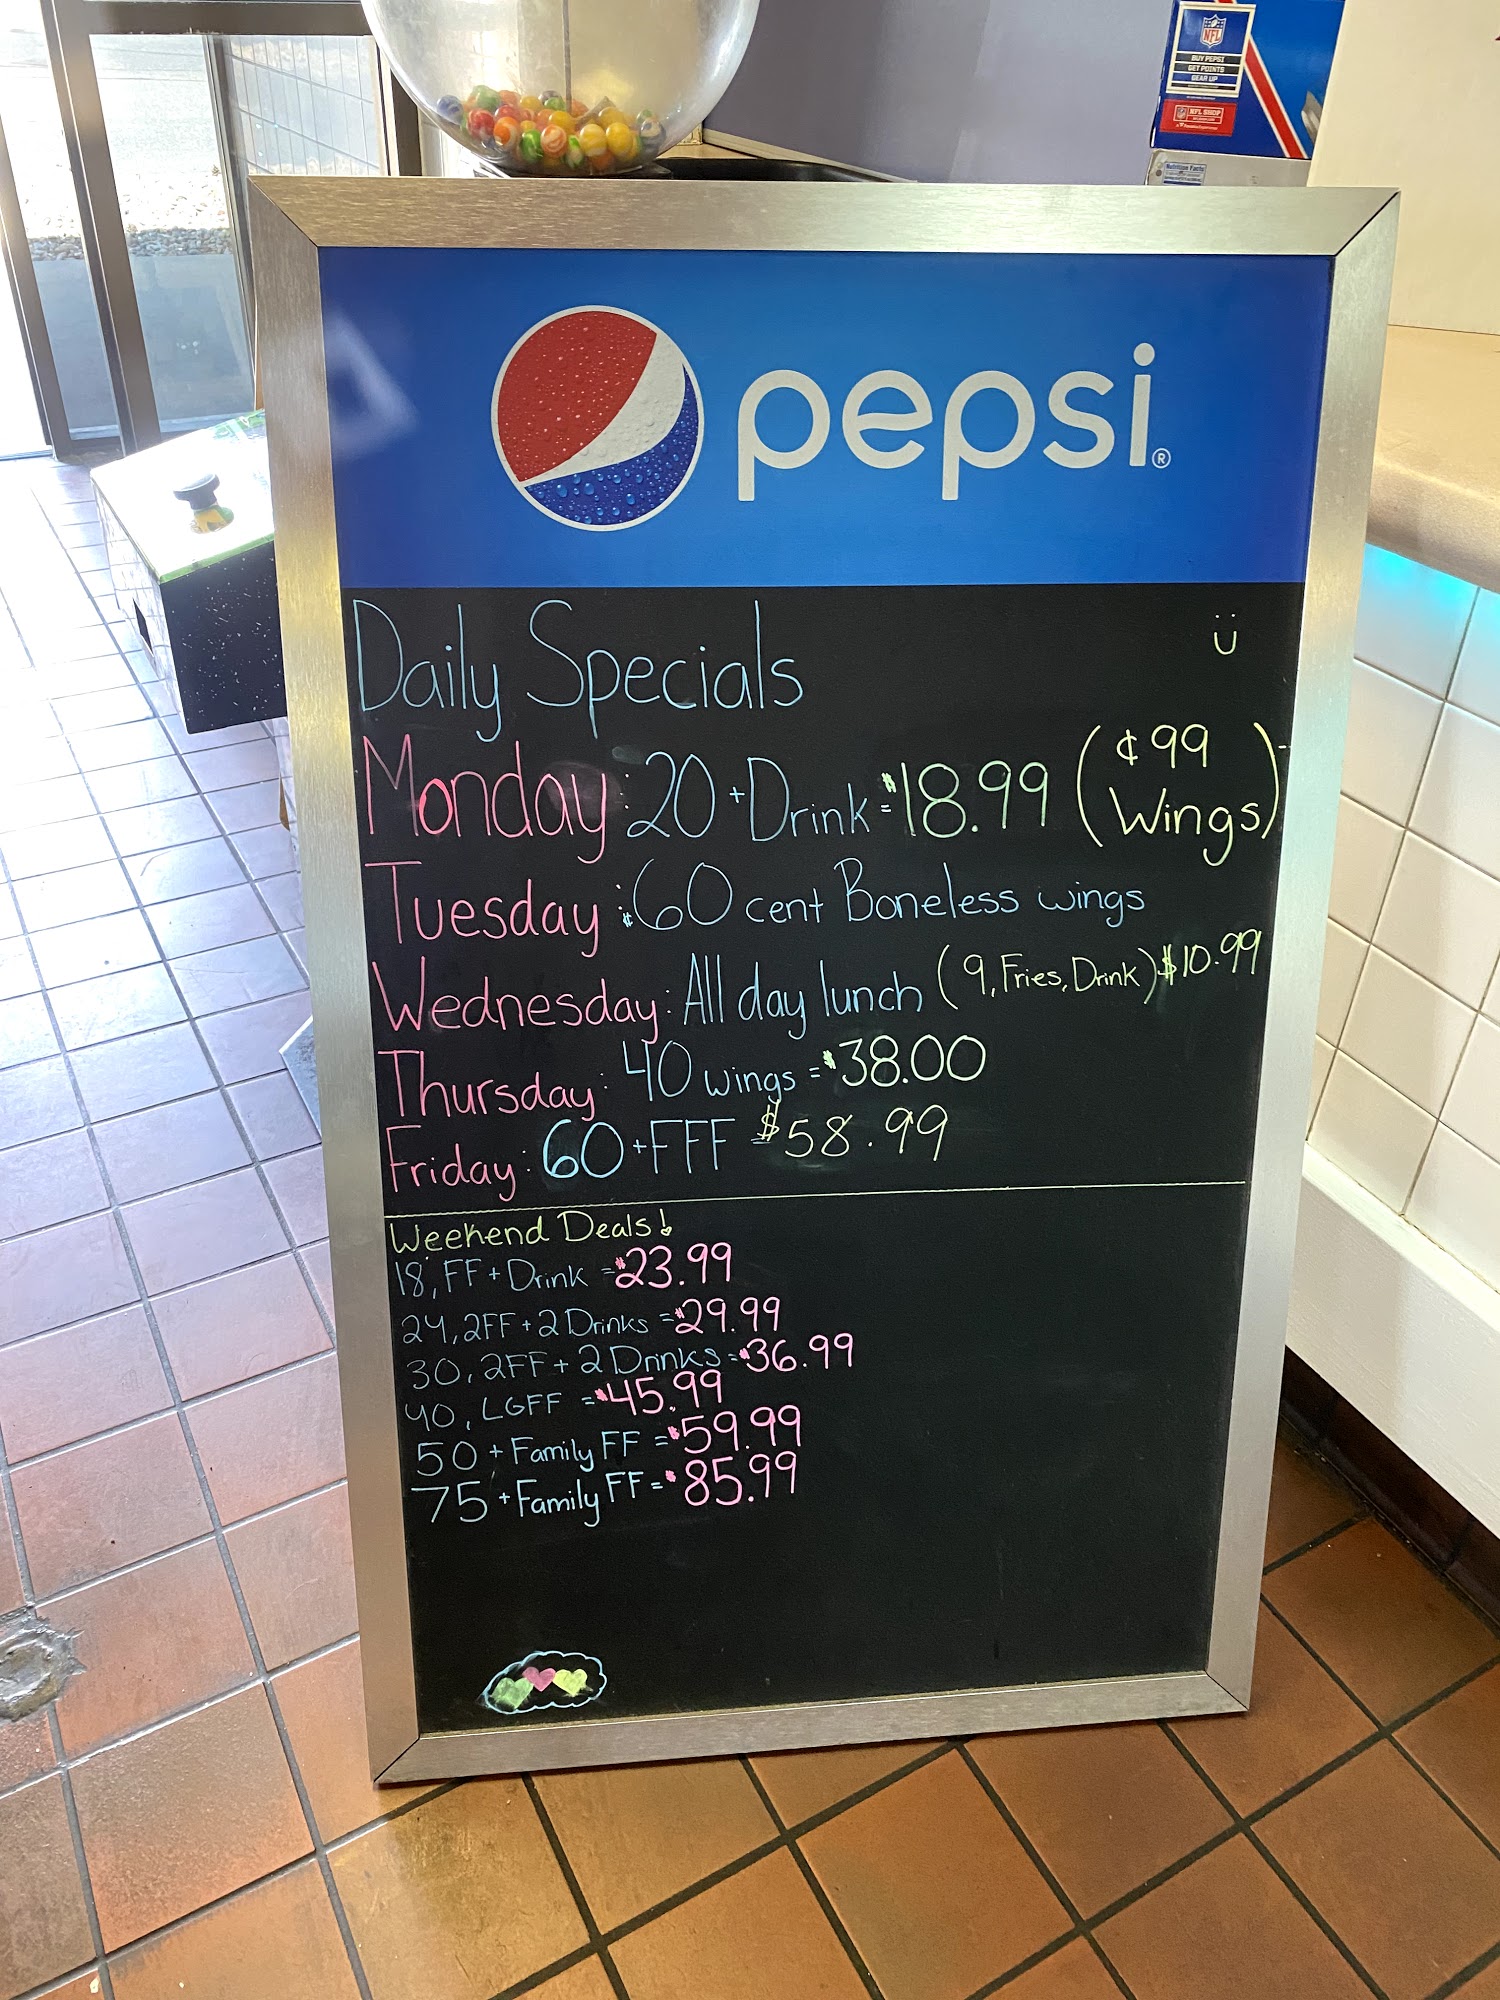 NFL
BUY PEPSI
GET POINTS
GEAR UP
NFL SHOP
Nutrition Facts
pepsi®
Daily Specials Ü
Monday: 20 + Drink = $18.99 (¢99 Wings)
Tuesday: ¢60 cent Boneless wings
Wednesday: All day lunch (9, Fries, Drink) $10.99
Thursday: 40 wings = $38.00
Friday: 60 + FFF = $58.99
Weekend Deals!
18, FF + Drink = $23.99
24, 2FF + 2 Drinks = $29.99
30, 2FF + 2 Drinks = $36.99
40, LGFF = $45.99
50 + Family FF = $59.99
75 + Family FF = $85.99